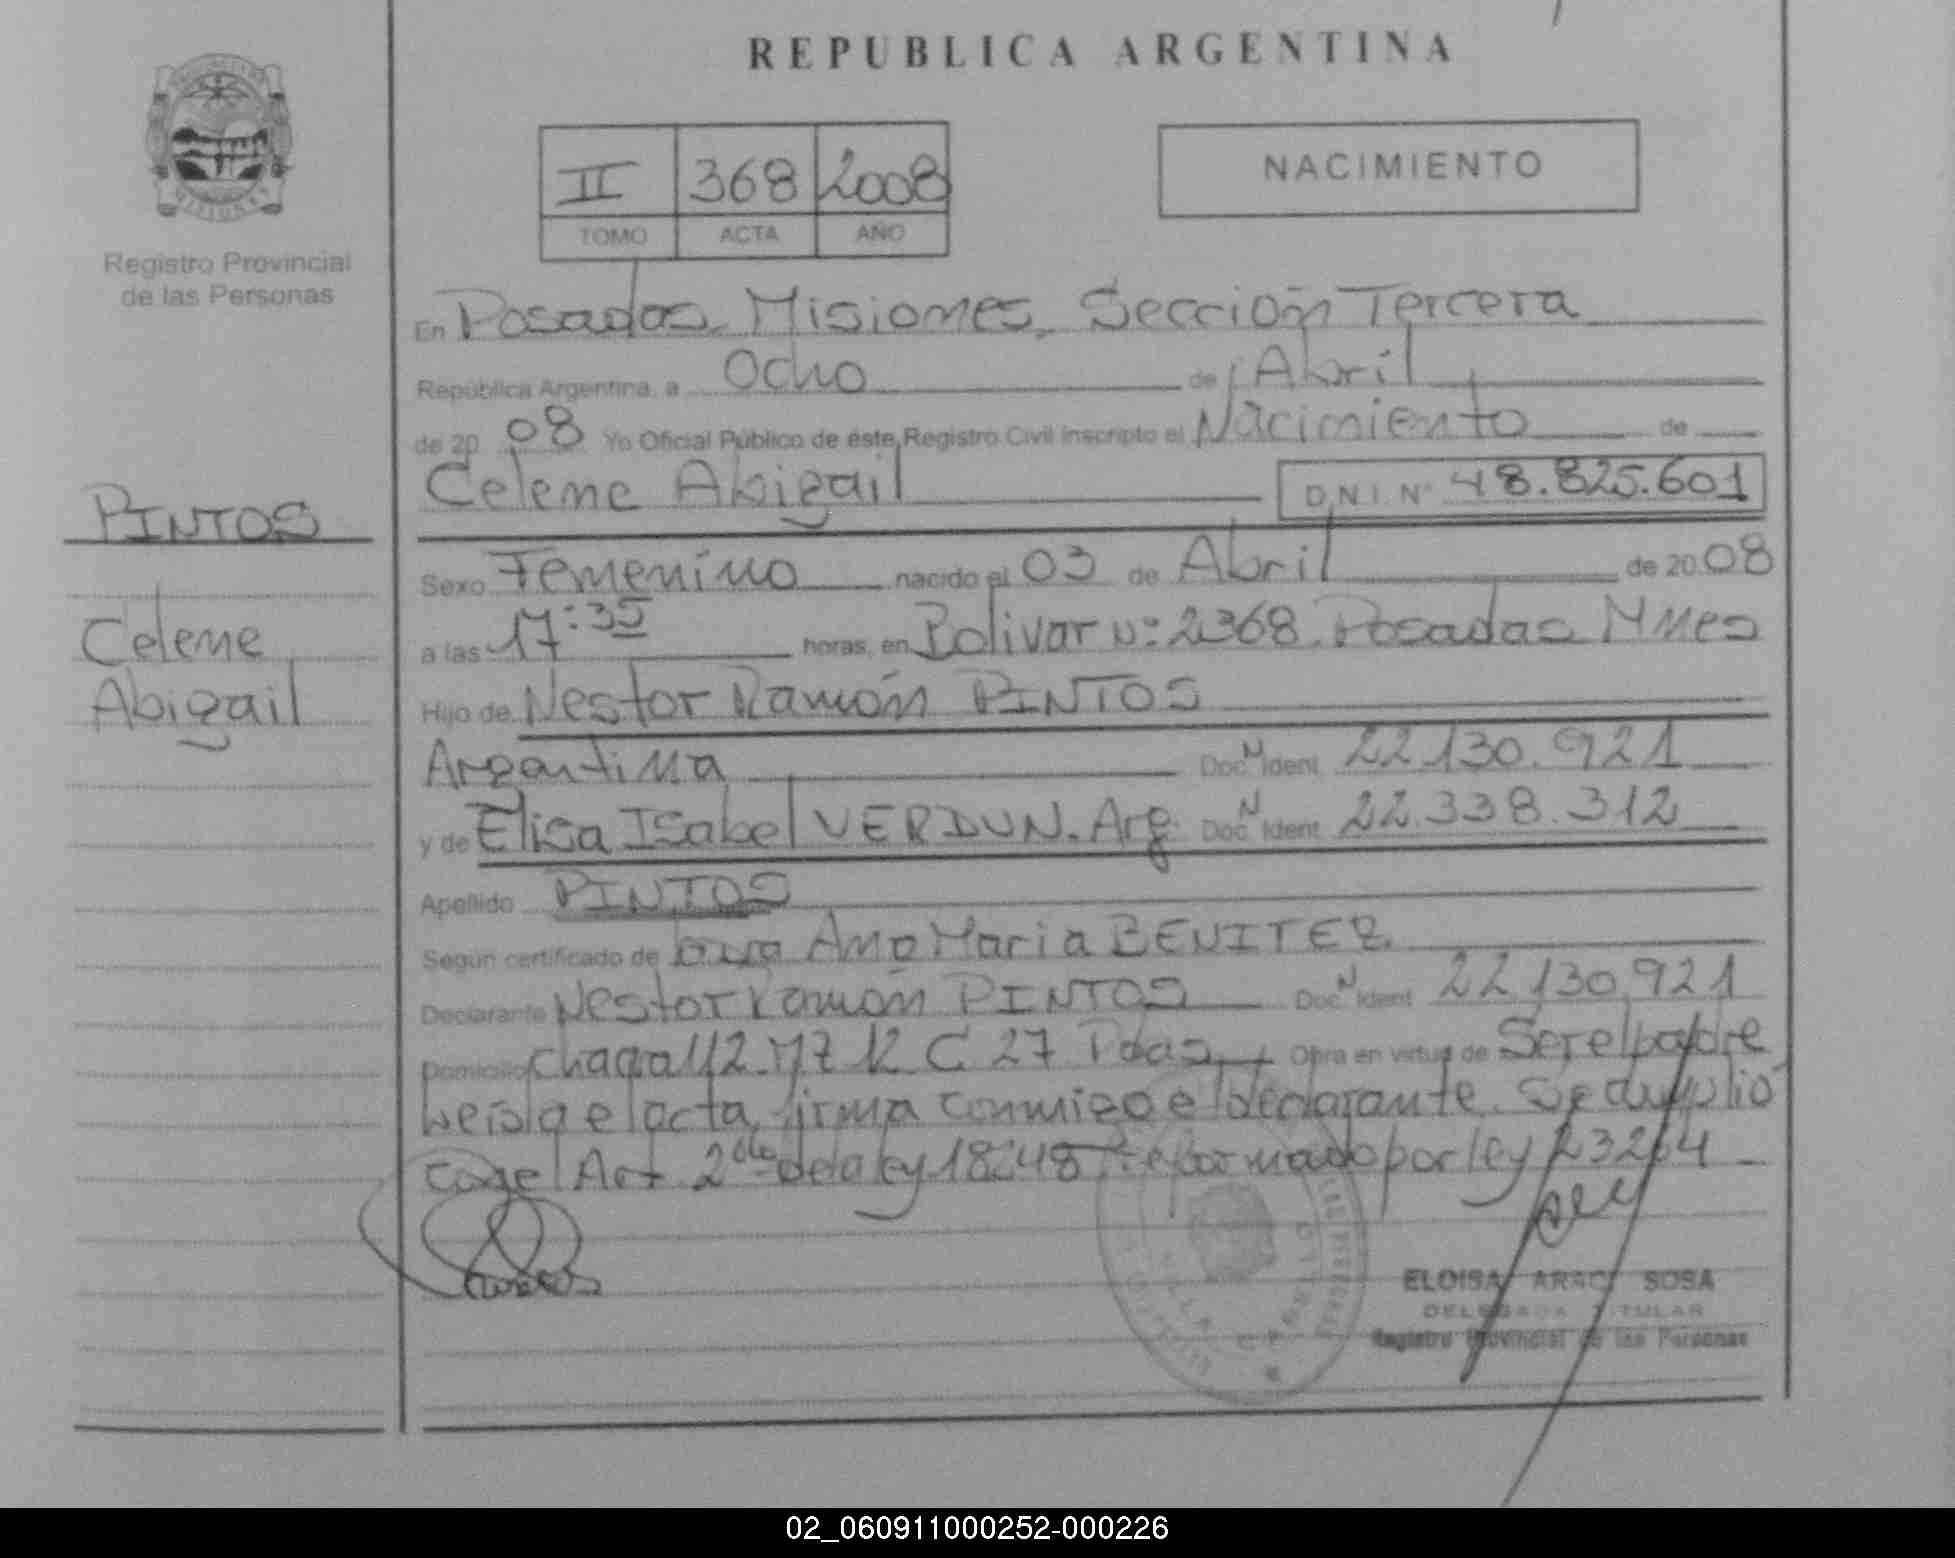 REPUBLICA ARGENTINA
II 368 2008
TOMO ACTA AÑO
NACIMIENTO
Registro Provincial
de las Personas
PINTOS
Celene
Abigail
En Posadas, Misiones, Sección Tercera
República Argentina, a Ocho de Abril
de 20 08 Yo Oficial Público de éste Registro Civil inscripto el Nacimiento de
Celene Abigail D.N.I. Nº 48.825.601
Sexo Femenino nacido el 03 de Abril de 20 08
a las 17:35 horas, en Bolivar Nº: 2368. Posadas Mnes
Hijo de Nestor Ramón PINTOS
Argentina Doc. N Ident. 22.130.921
y de Elisa Isabel VERDUN. Arg. Doc. N Ident. 22.338.312
Apellido PINTOS
Según certificado de Ana Maria BENITEZ
Declarante Nestor Ramón PINTOS Doc. N Ident. 22.130.921
Domicilio Chacra 112 Mz 12 C 27 Pdas. Obra en virtud de Ser el padre
leída el acta, firma conmigo el declarante. Se cumplió
con el Art 2do de la ley 18248 reformado por ley 23264
ELOISA ARACI SOSA
DELEGADA TITULAR
Registro Provincial de las Personas
02_060911000252-000226